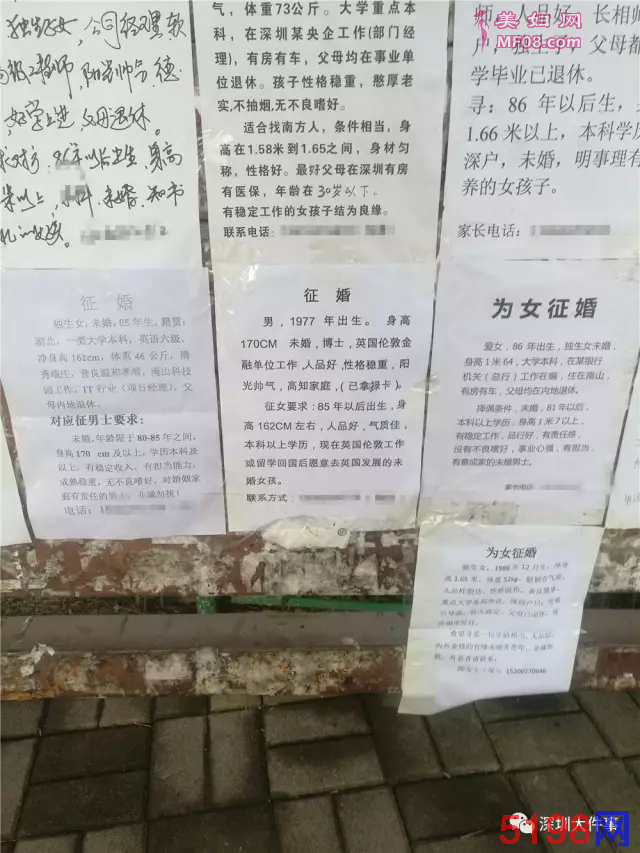 独生女,公司经理,教
阳光帅气,德
好学上进,父母退休。
86年以后出生,身高
未婚,知书
气,体重73公斤。大学重点本
科,在深圳某央企工作(部门经
理),有房有车,父母均在事业单
位退休。孩子性格稳重,憨厚老
实,不抽烟,无不良嗜好。
适合找南方人,条件相当,身
高在1.58米到1.65之间,身材匀
称,性格好。最好父母在深圳有房
有医保,年龄在30岁以下。
有稳定工作的女孩子结为良缘。
联系电话:
美妇网
MF08.com
师,人品好,长相
学毕业已退休。
寻:86年以后生,
1.66米以上,本科学
深户,未婚,明事理有
养的女孩子。
家长电话:
征 婚
独生女,未婚,85年生,籍贯:
湖北,一类大学本科,英语六级,
净身高162cm,体重46公斤,清
秀端庄,善良温和孝顺,南山科技
园工作,IT行业(项目经理),父
母内地退休。
对应征男士要求:
未婚,年龄限于80-85年之间,
身高170 cm及以上,学历本科及
以上;有稳定收入,有担当能力,
成熟稳重,无不良嗜好,对婚姻家
庭有责任的男士,非诚勿扰!
电话:
征 婚
男,1977年出生。身高
170CM 未婚,博士,英国伦敦金
融单位工作,人品好,性格稳重,阳
光帅气,高知家庭,(已拿绿卡)。
征女要求:85年以后出生,身
高162CM左右,人品好,气质佳,
本科以上学历,现在英伦敦工作
或留学回国后愿意去英国发展的未
婚女孩。
联系方式:
为女征婚
爱女,86年出生,独生女未婚,
身高1米64,大学本科,在某银行
机关(总行)工作在编,住在南山,
有房有车,父母均在内地退休。
择偶条件,未婚,81年以后,
本科以上学历。身高1米7以上,
有稳定工作,品行好,有责任感,
没有不良嗜好,事业心强,有担当,
有意成家的未婚男士。
家长电话:
为女征婚
独生女,1986年12月生,净身
高1.65米,体重52kg,
重点大学本科毕业,深圳户口,
政女士(母):15200270646
深圳大件事
5198网